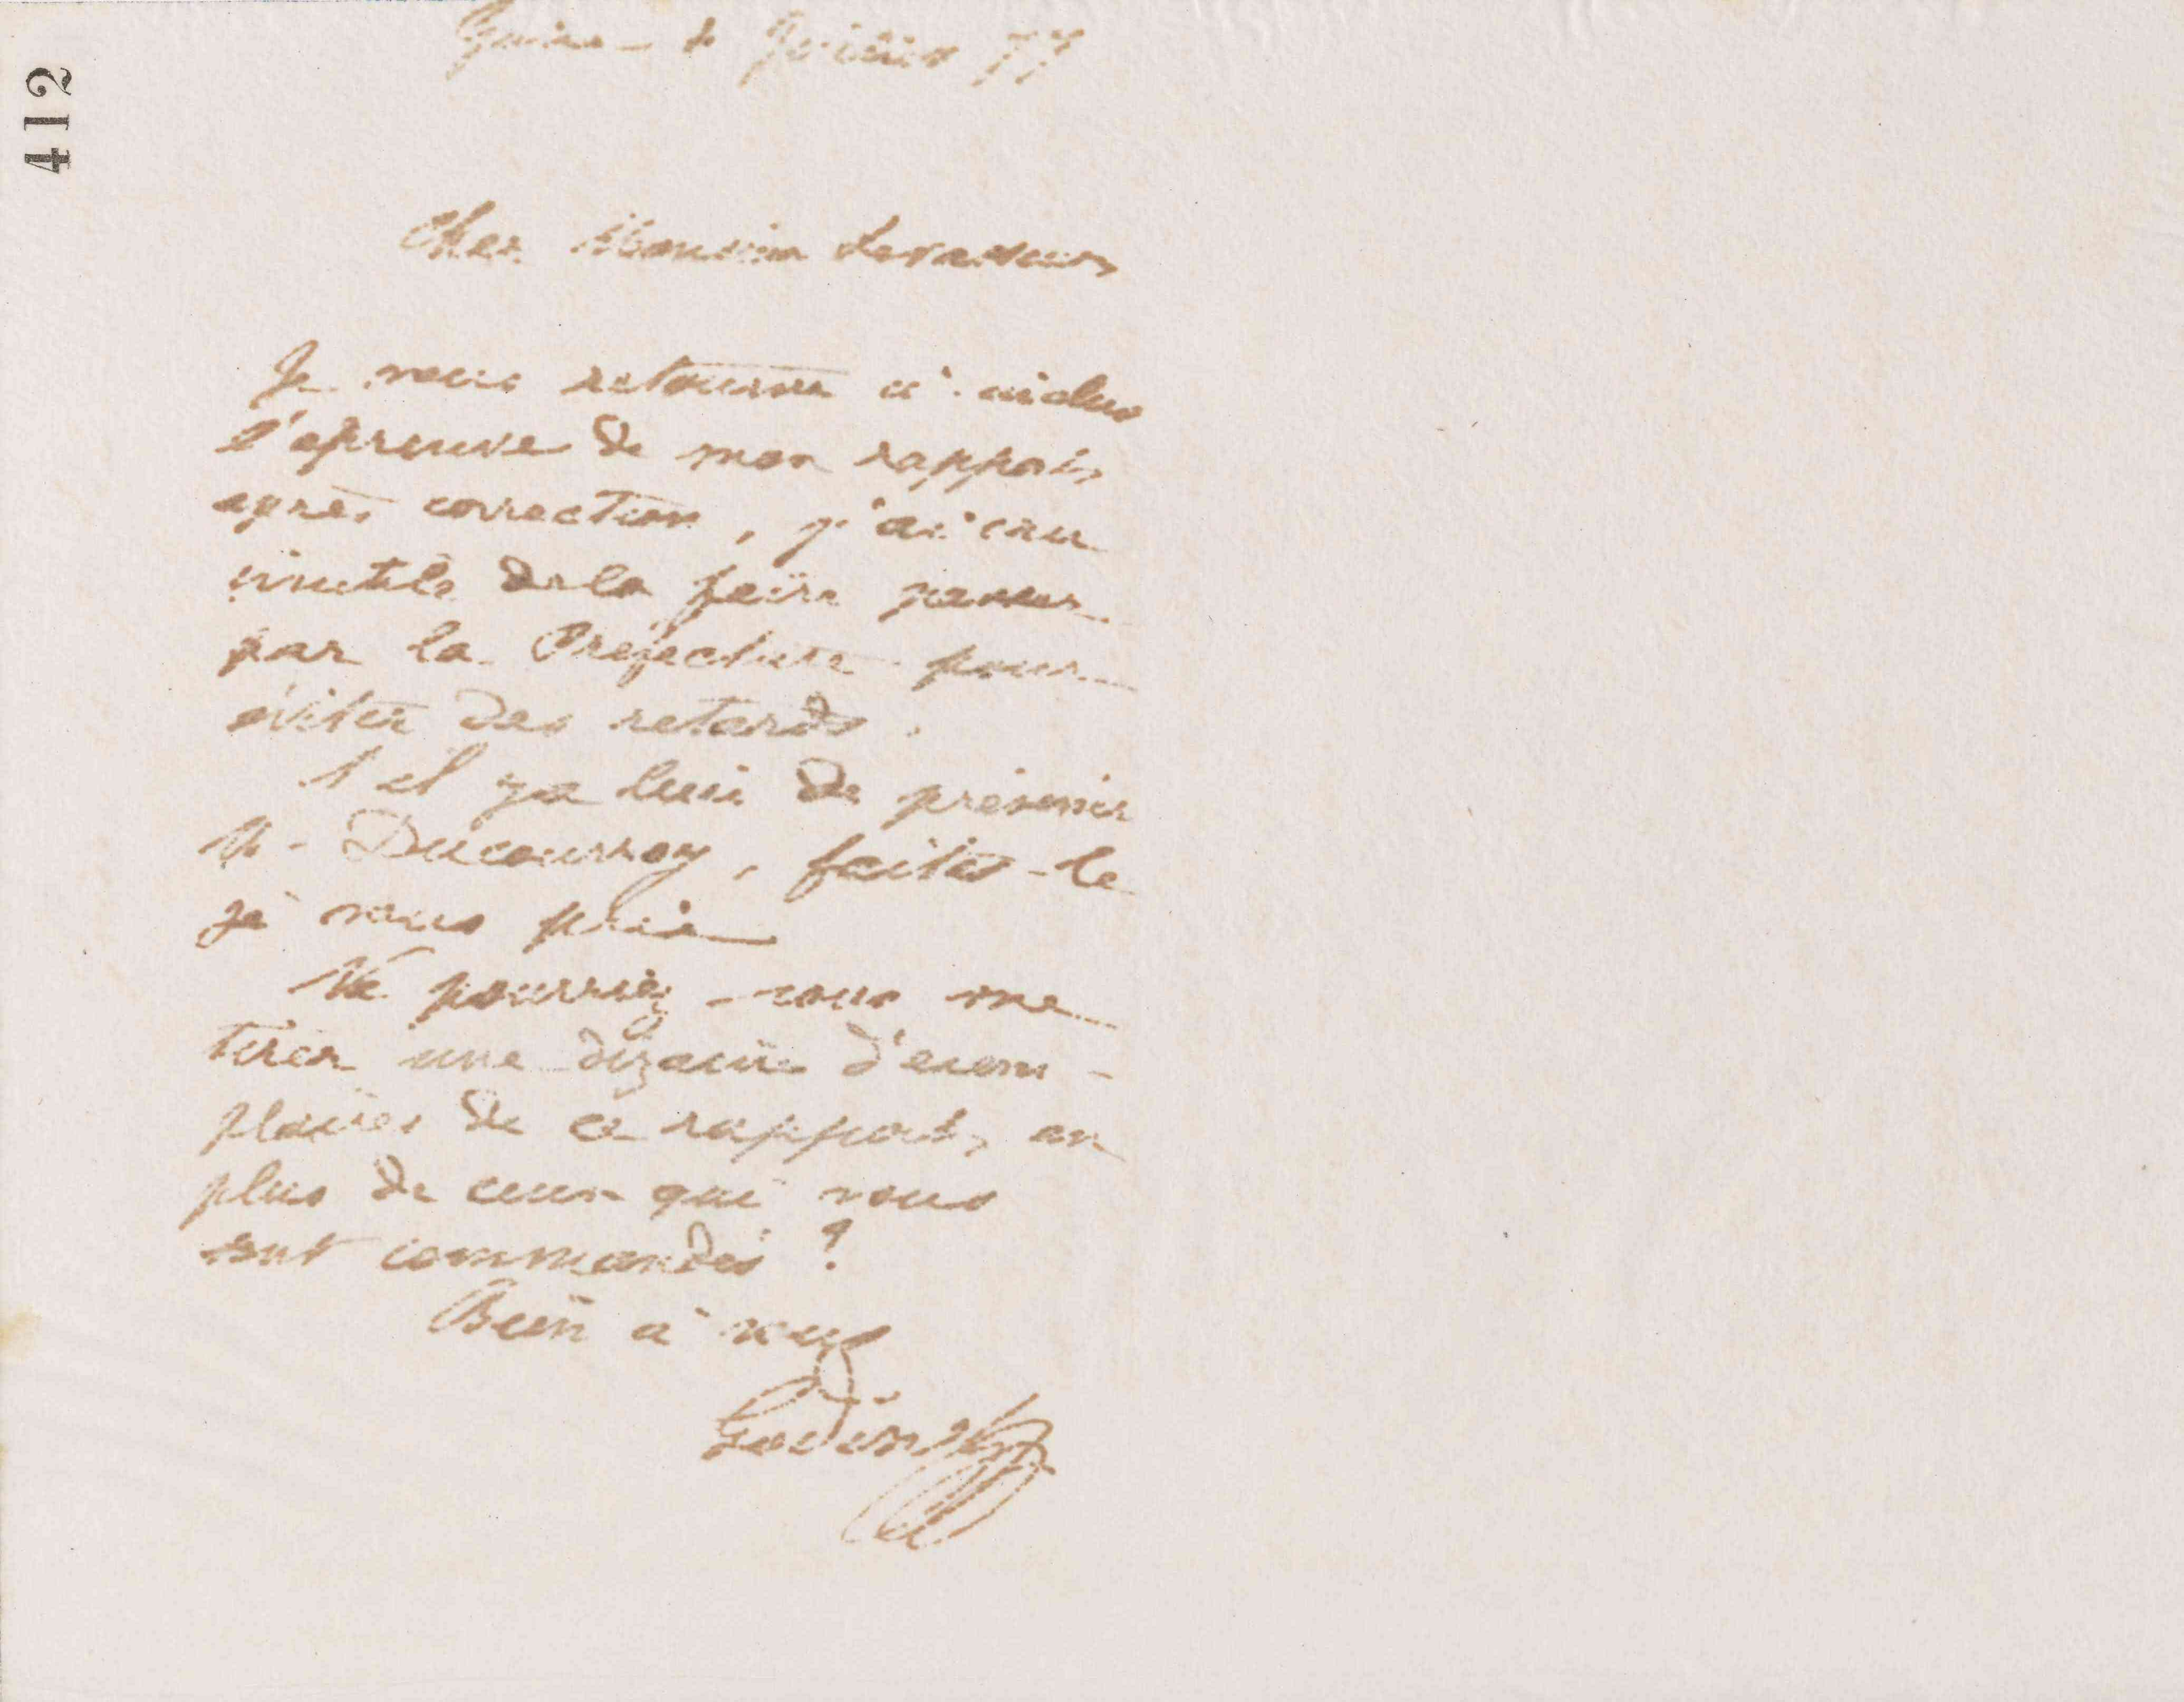 412
Guise le Juillet 77
Cher Monsieur Levasseur,
Je vous retourne ci-inclus
l'épreuve de mon rapport,
après correction, j'ai cru
inutile de la faire passer
par la Préfecture pour
éviter des retards.
S'il y a lieu de prévenir
M. Ducourroy, faites-le
je vous prie
Ne pourriez-vous me
tirer une dizaine d'exem-
plaires de ce rapport, en
plus de ceux qui vous
sont commandés ?
Bien à vous
Godin